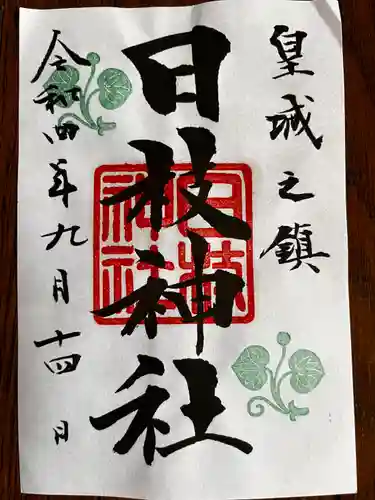 皇城之鎮
日枝神社
令和四年九月十四日
日枝神社